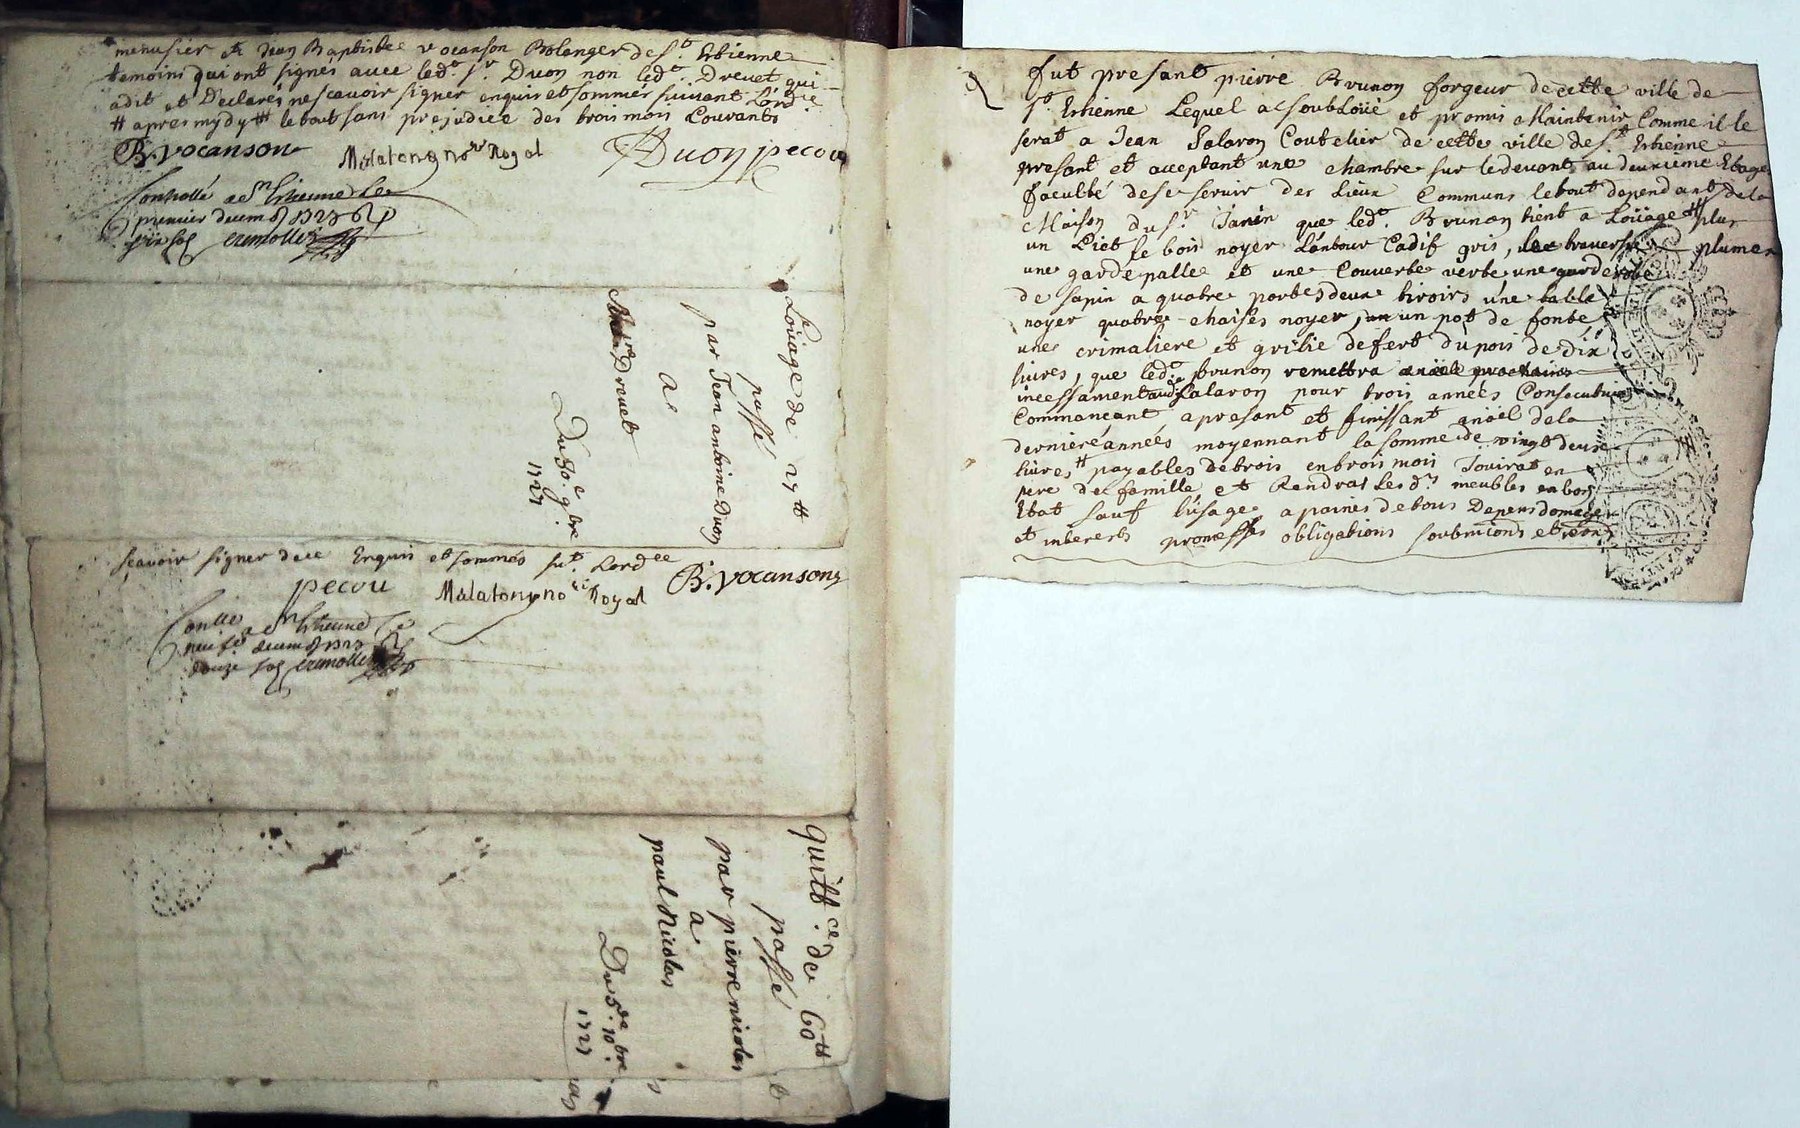 menusier et Jean Baptistee vocanson Bolanger de St. Estienne
temoins qui ont signés avec ledt. Sr. Duon non ledt. Drevet qui
a dit et Declarés ne scavoir signer enquis et sommés suivant L'ordce
# apres mydy # le tout sans prejudice des trois mois Courants
B. vocanson Malaton nore Royal A Duon pecou
Controllé a St. Estienne le
premier decem 1727
six sols
Loüage de 27 tt
passé
par Jean antoine Duon
a
Drevet
Du 30e. 9bre.
1727
scavoir signer dece Enquis et sommés st. Lordce
pecou Malaton nore Royal B. vocanson
Contlé a St Estienne le
neuf decem 1727
douze sols
quittce. de 60 tt
passé
par pierre nicolas
a
paul Nicolas
Du 5de. 10bre.
1727
fut presant pierre Brunon forgeur de cette ville de
St. Estienne Lequel a soubLoüé et promis Maintenir Comme il le
serat a Jean Salaron Coutelier de cette ville de St. Estienne
presant et acceptant une chambre sur le devant au deuxieme Etage
faculté de se servir des Lieux Communs le tout dependant de la
Maison du Sr. Janin que ledt. Brunon tient a Loüage # plus
un Liet de bois noyer Lantour Cadif gris, traversie plumes
une garde pallee et une Couverte verte une garderobe
de sapin a quatre portes deux tiroirs une table
noyer quatre chaises noyer, un pot de fonte
une crimaliere et grilie de fert du pois de dix
livres, que ledt. brunon remettra
incessament audt Salaron pour trois annés Consecutives
Commancant a presant et finissant a nöel de la
derniere années moyennant la somme de vingt deux
livres tt payables de trois en trois mois Jouirat en
pere de famille et Rendrat les ds. meubles en bon
Etat sauf l'usage a paines de tous Depens domages
et interests promesses obligations soubmitions et